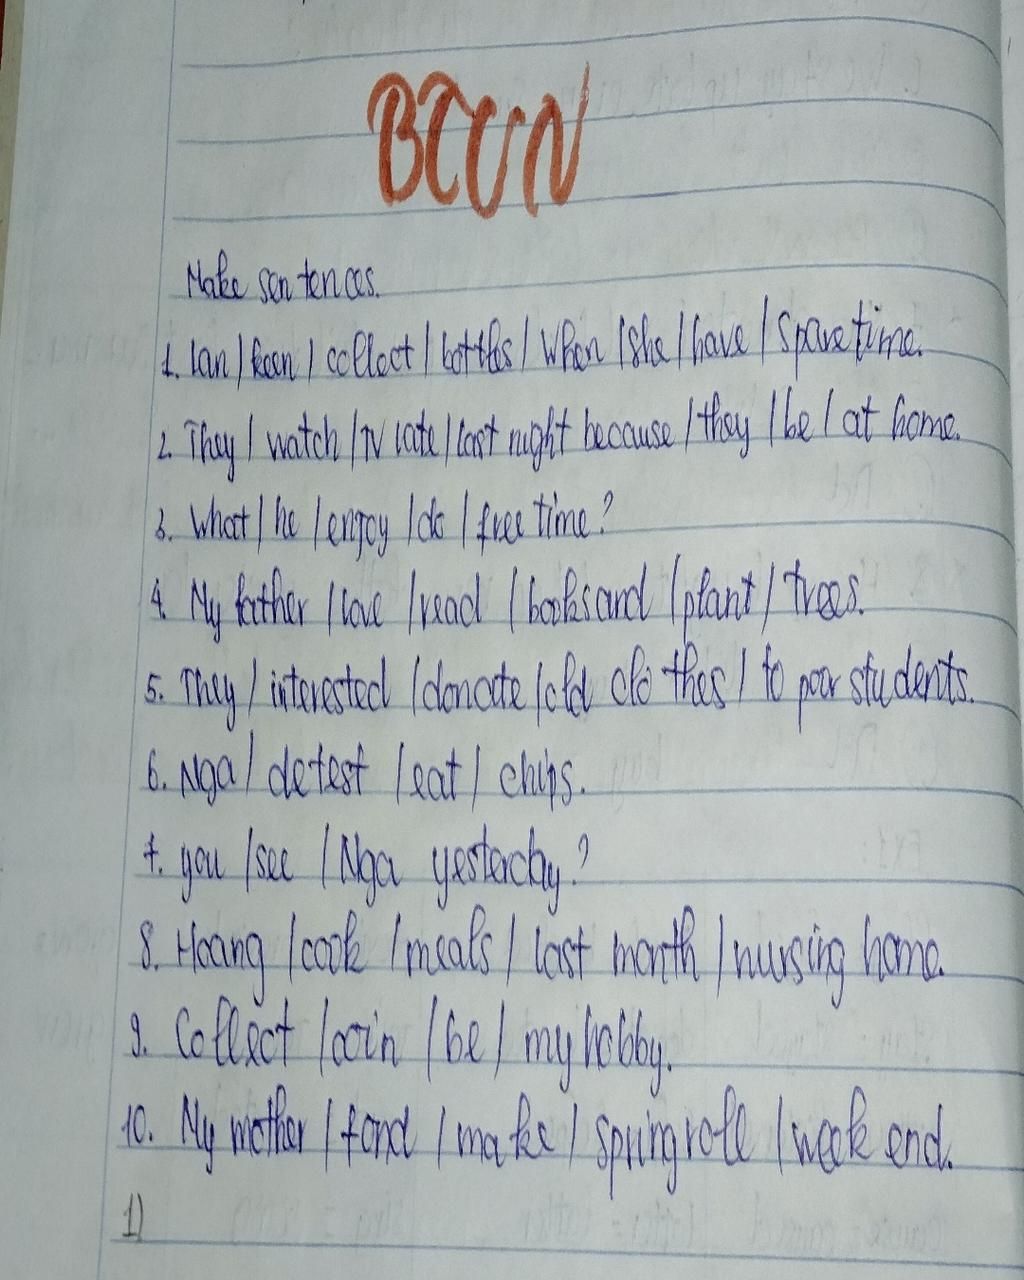 BTVN
Make sentences.
1. Lan / keen / collect / bottles / when / she / have / spare time.
2. They / watch / TV late / last night because / they / be / at home.
3. What / he / enjoy / do / free time?
4. My father / love / read / books and / plant / trees.
5. They / interested / donate / old clothes / to poor students.
6. Nga / detest / eat / chips.
7. you / see / Nga yesterday?
8. Hoang / cook / meals / last month / nursing home.
9. Collect / coin / be / my hobby.
10. My mother / fond / make / spring roll / week end.
1)